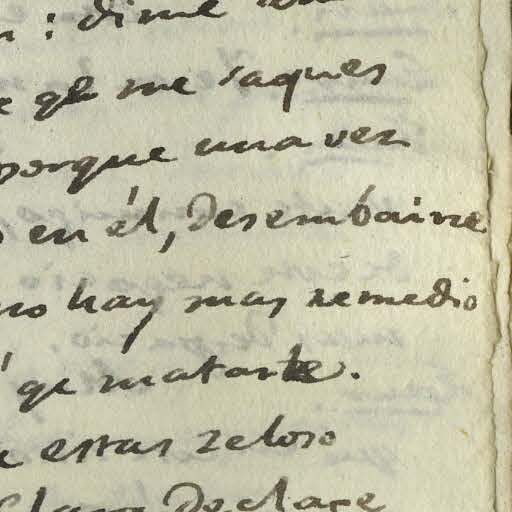 : dime
qe me saques
porque una vez
en él, desembaine
no hay mas remedio
qe matarte.
estas zeloso
Claro Declare